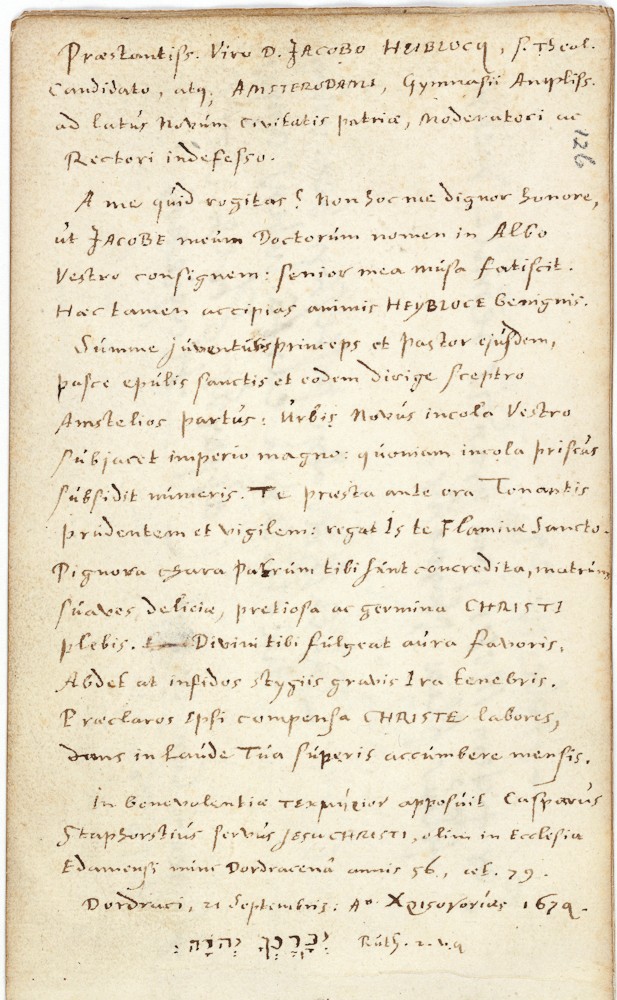 Præstantiss. Viro D. JACOBO HEIBLOCQ, s. Theol.
Candidato, atq; AMSTERODAMI, Gymnasii Ampliss.
ad latus Novum Civitatis patriæ, Moderatori ac
Rectori indefesso.
126
A me quid rogitas? Non hoc me dignor honore,
ut JACOBE meum Doctorum nomen in Albo
Vestro consignem: senior mea musa fatiscit.
Hæc tamen accipias animis HEYBLOCE benignis.
Summe juventutis princeps et Pastor ejusdem,
pasce epulis sanctis et eodem dirige sceptro
Amstelios partus: Urbis Novus incola Vestro
subjacet imperio magno: quoniam incola priscus
subsidit numeris. Te præsta ante ora Tonantis
prudentem et vigilem: regat Is te Flamine Sancto.
Pignora chara Patrum tibi sunt concredita, matrum
suaves deliciæ, pretiosa ac germina CHRISTI
plebis. Divini tibi fulgeat aura favoris,
Abdet at infidos stygiis gravis Ira tenebris.
Præclaros Ipsi compensa CHRISTE labores,
dans in Laude Tua superis accumbere mensis.
In Benevolentiæ τεκμήριον apposuit Casparus
Staphorstius servus JESU CHRISTI, olim in Ecclesia
Edamensi nunc Dordracena annis 56., æt. 79.
Dordraci, 21 Septembris: Aº Χρισογονίας 1679.
יְבָרֶכְךָ יְהוָה: Ruth. 2. v. 4